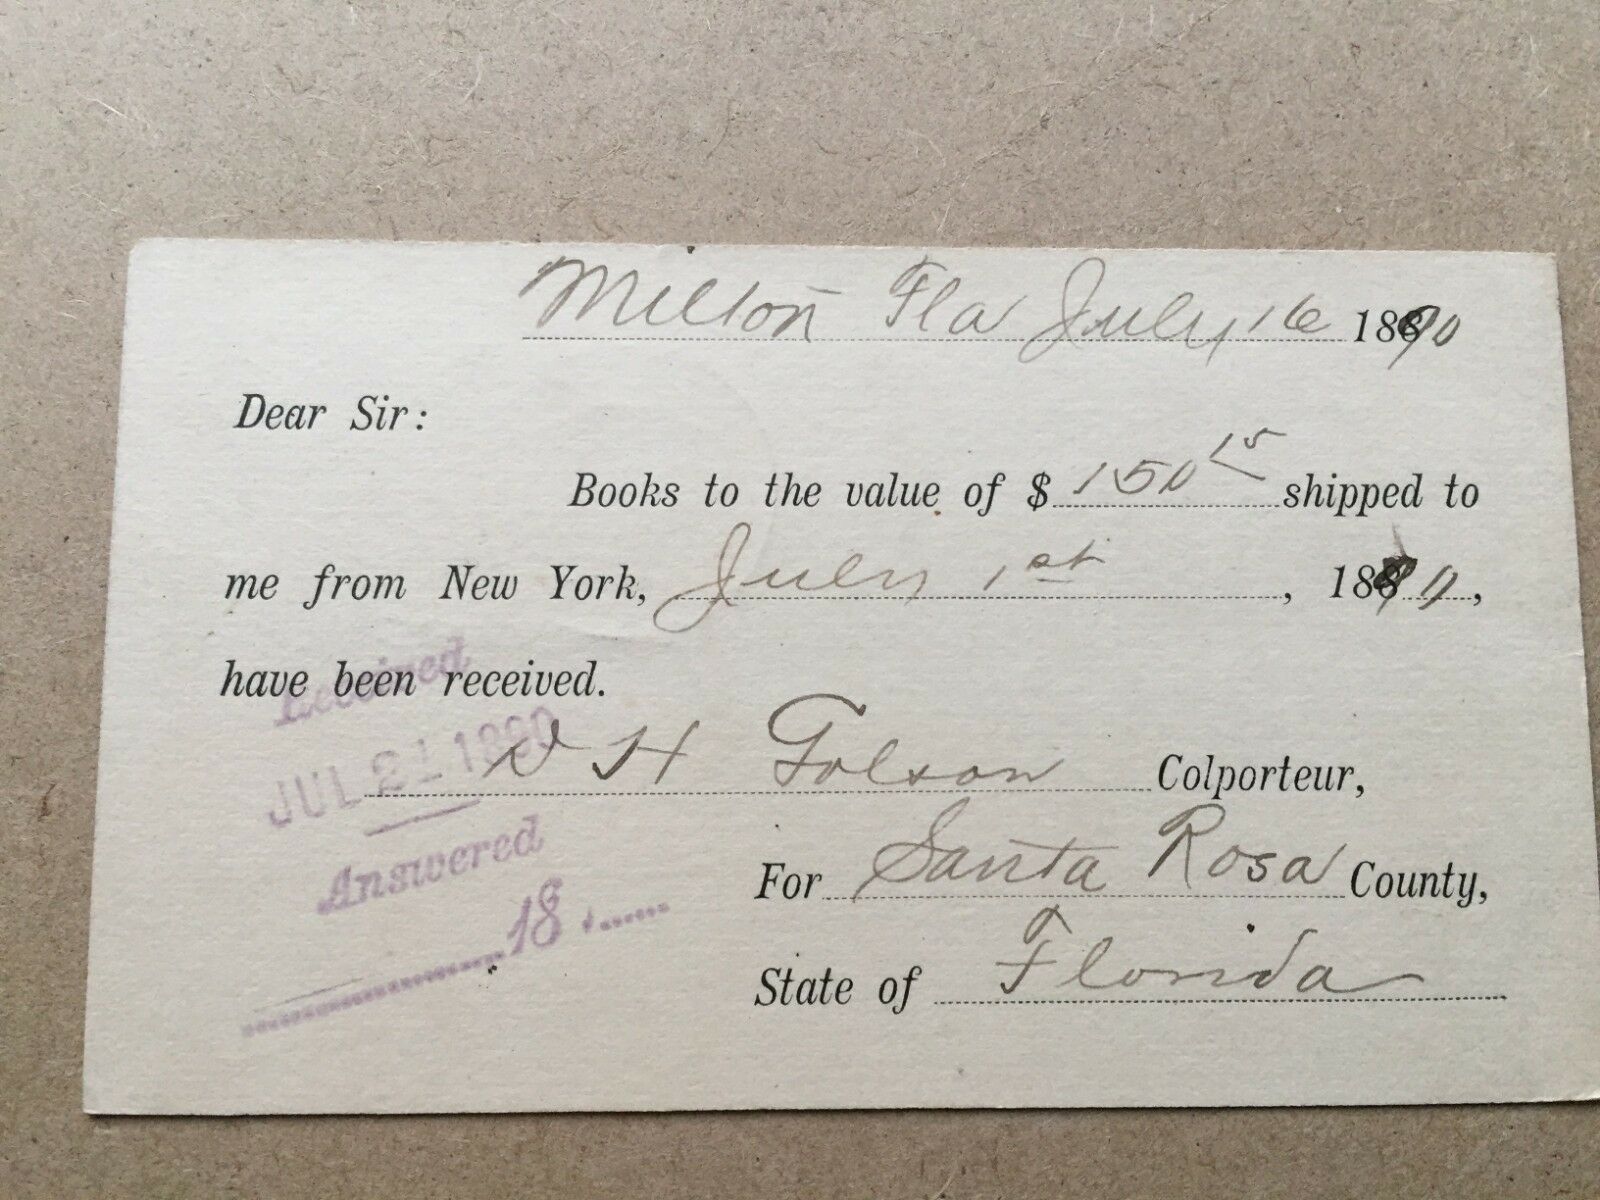 Milton Fla July 16 1890
Dear Sir:
Books to the value of $ 150 15 shipped to
me from New York, July 1st, 1890,
have been received.
D H Tolson Colporteur,
For Santa Rosa County,
State of Florida
Received
JUL 21 1890
Answered
18